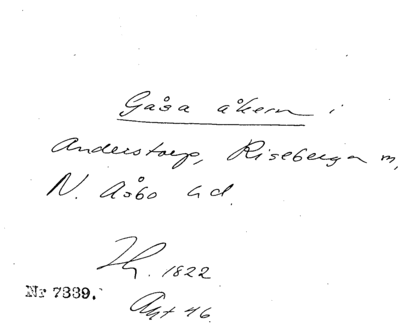 Gåsa åkern i
Anderstorp, Riseberga m,
N. Åsbo hd.
Zh. 1822
Nr 7339.
Akt 46